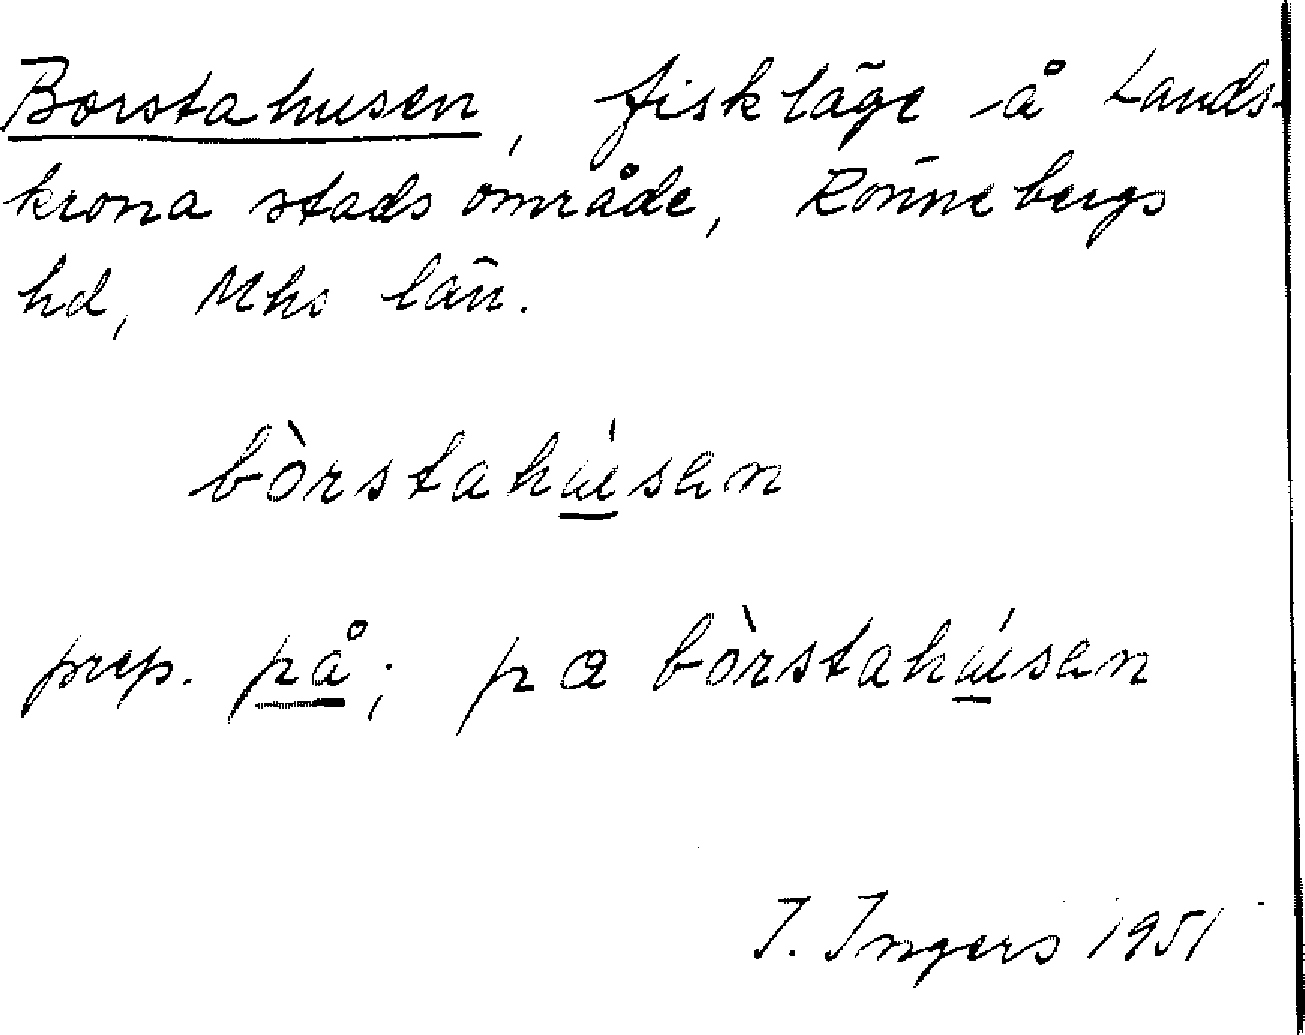 Borstahusen, fiskläge å Lands-
krona stadsområde, Rönnebergs
hd, Mhs län.
bòrstahúsen
prep. på; pa bòrstahúsen
I. Ingers 1951